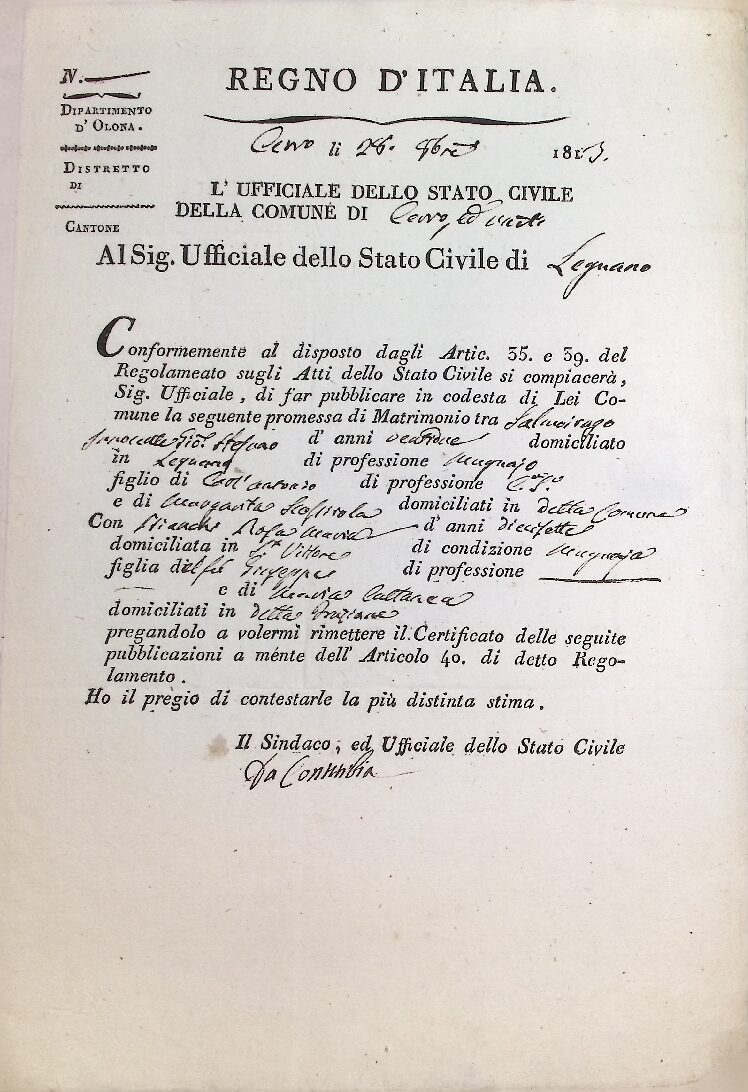 N.
REGNO D'ITALIA.
DIPARTIMENTO
D'OLONA.
Cerro li 28. 1813.
DISTRETTO
DI
L'UFFICIALE DELLO STATO CIVILE
DELLA COMUNE DI Cerro, ed
CANTONE
Al Sig. Ufficiale dello Stato Civile di Legnano
Conformemente al disposto dagli Artic. 35. e 39. del
Regolameato sugli Atti dello Stato Civile si compiacerà,
Sig. Ufficiale, di far pubblicare in codesta di Lei Co-
mune la seguente promessa di Matrimonio tra Salmoirago
Stefano d'anni ventidue domiciliato
in Legnano di professione Mugnajo
figlio di di professione
e di Margarita domiciliati in detta Comune
Con Bianchi Rosa Maria d'anni diecisette
domiciliata in S. Vittore di condizione Mugnaja
figlia del Giuseppe di professione
e di Maria Cattanea
domiciliati in detta Frazione
pregandolo a volermi rimettere il Certificato delle seguite
pubblicazioni a ménte dell' Articolo 40. di detto Rego-
lamento.
Ho il prègio di contestarle la più distinta stima.
Il Sindaco, ed Ufficiale dello Stato Civile